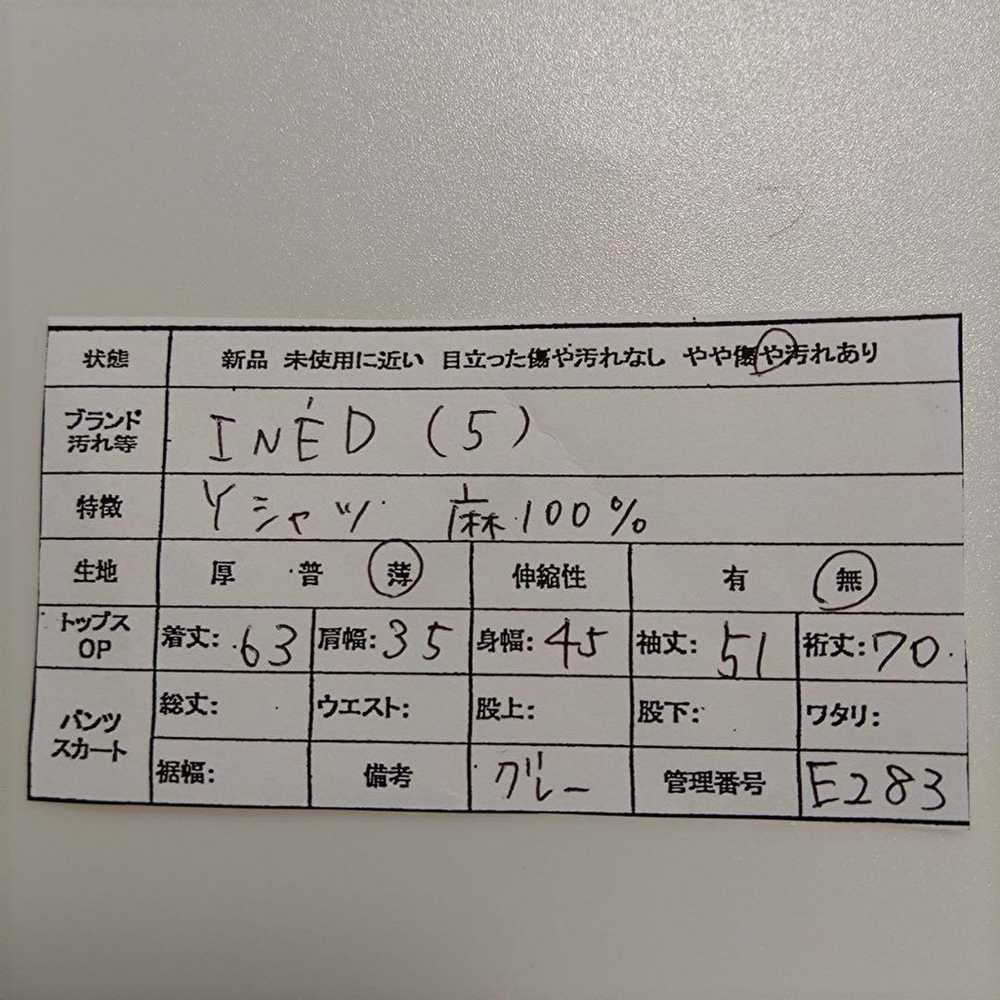 状態 新品 未使用に近い 目立った傷や汚れなし やや傷や汚れあり
ブランド
汚れ等 INÉD (5)
特徴 Yシャツ 麻100%
生地 厚・普 薄 伸縮性 有 無
トップス
OP 着丈: 63 肩幅: 35 身幅: 45 袖丈: 51 裄丈: 70
パンツ
スカート 総丈: ウエスト: 股上: 股下: ワタリ:
裾幅: 備考 グレー 管理番号 E283